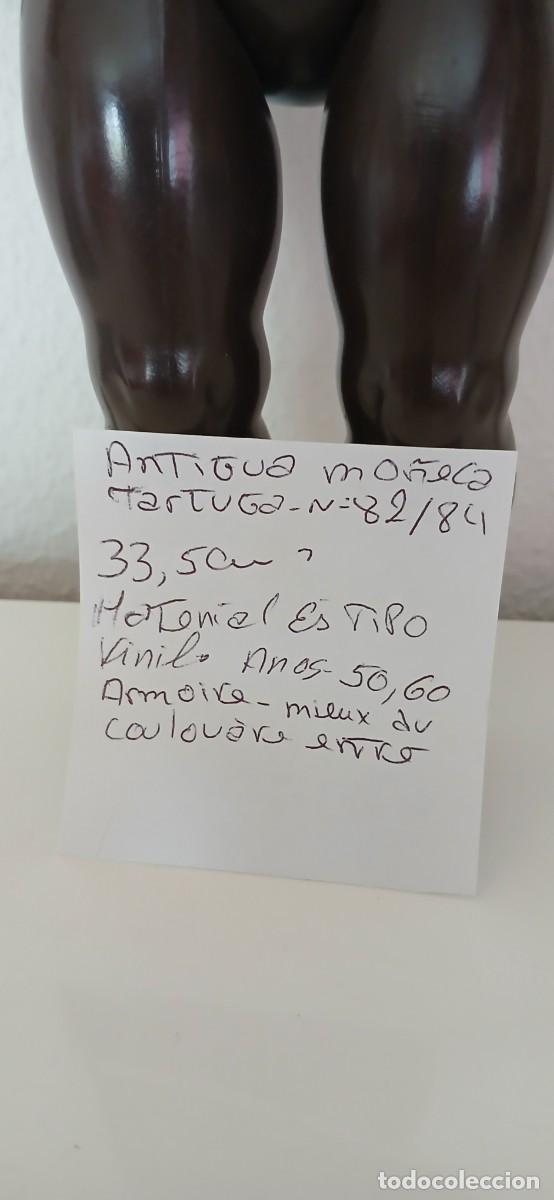 Antigua moñeca
Tartuga - Nº 82/84
33,5 cm
Material Es Tipo
Vinil. Anos - 50,60
Armoire - mieux du
coulouare entre
todocoleccion